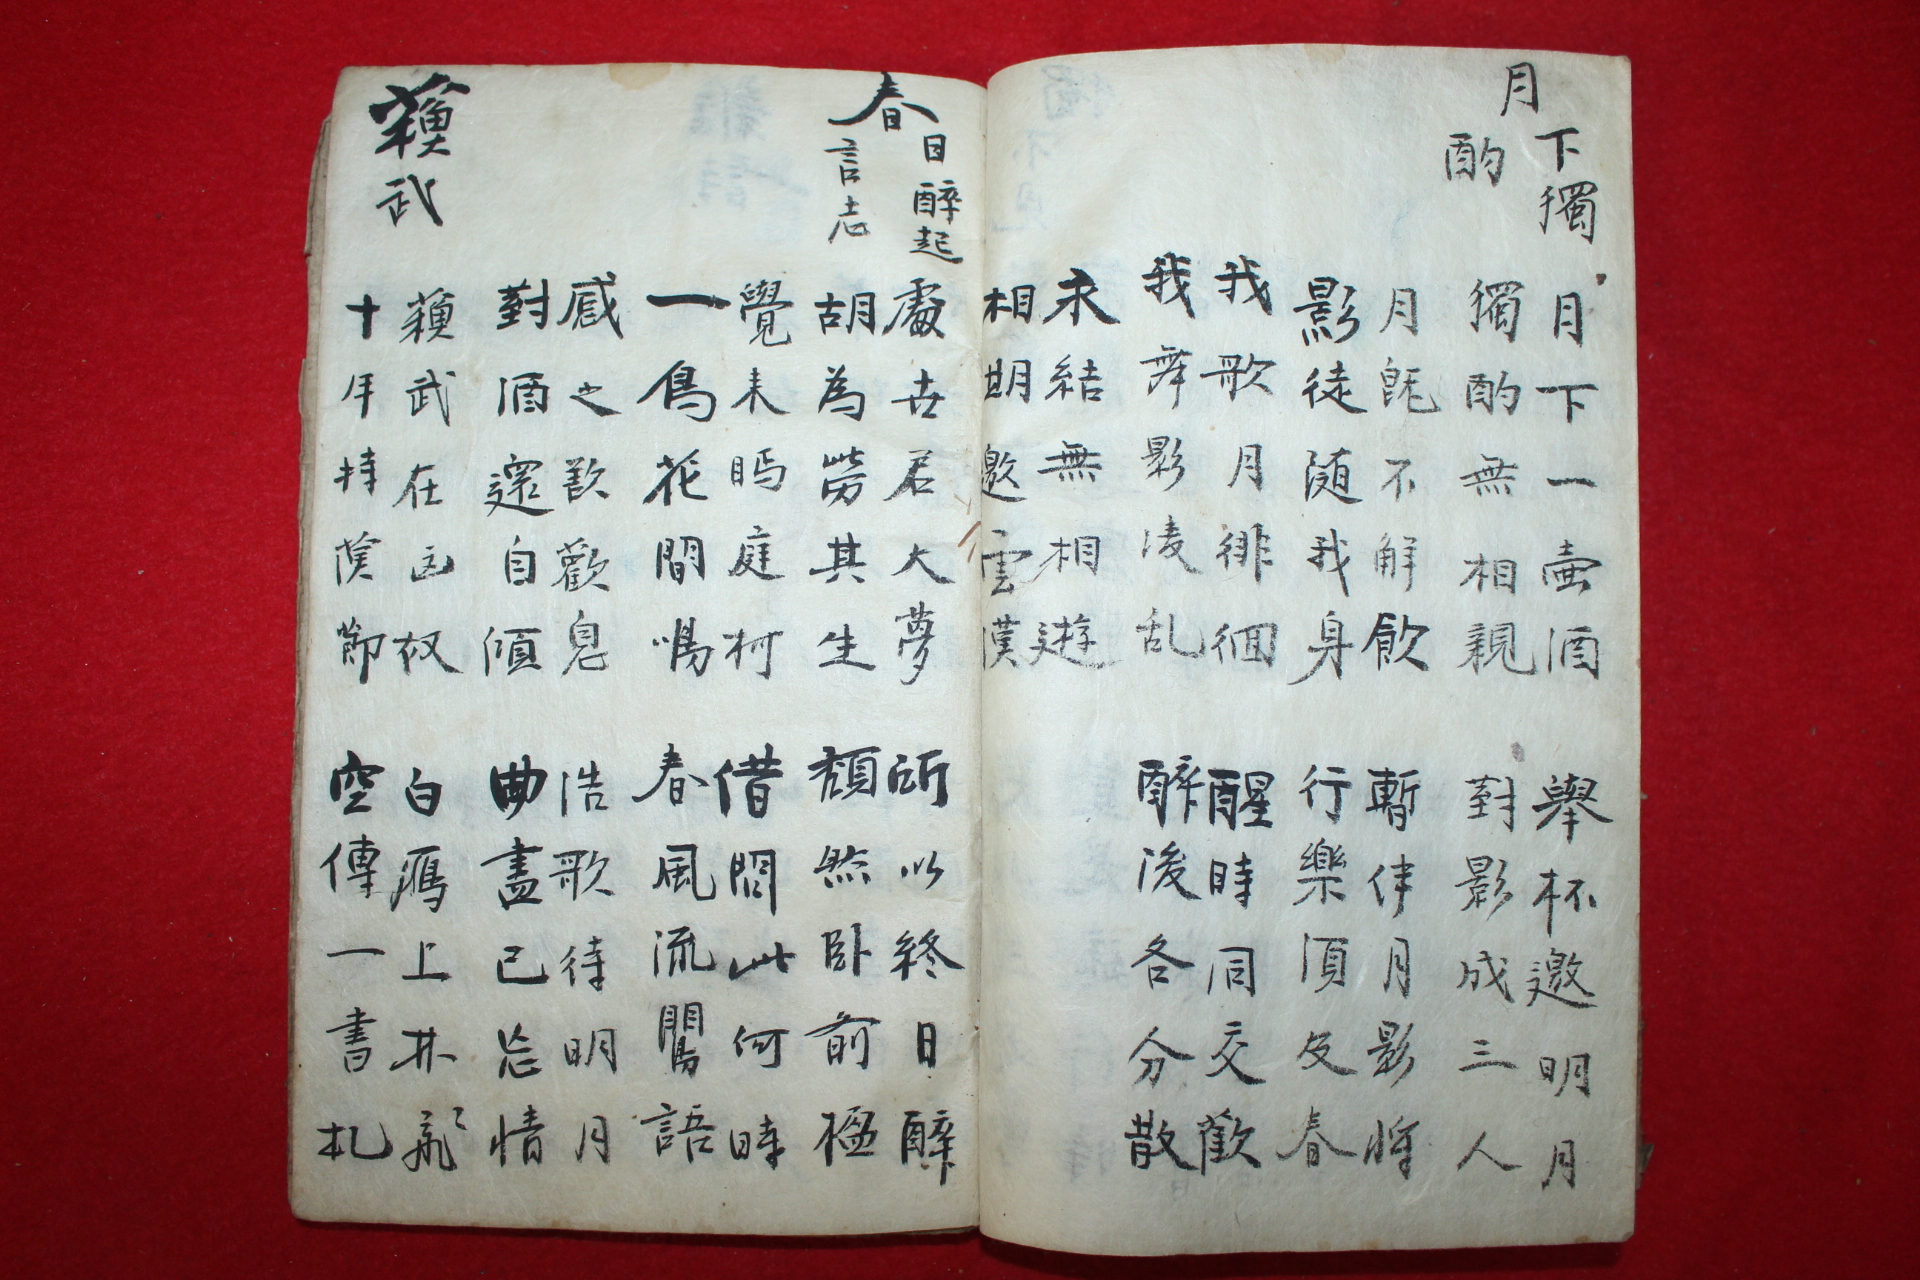 月下獨
酌
月下一壷酒 擧杯邀明月
獨酌無相親 對影成三人
月旣不解飮 暫伴月影將
影徒随我身 行樂須及春
我歌月徘徊 醒時同交歡
我舞影凌乱 醉後各分散
永結無相遊
相期邀雲漢
春日醉起
言志
處世若大夢 所以終日醉
胡為勞其生 頹然卧前楹
覺来眄庭柯 借問此何時
一鳥花間鳴 春風流鸎語
感之欲歡息 浩歌待明月
對酒還自傾 曲盡已忘情
蘓武
蘓武在匈奴 白鴈上林飛
十年持漢節 空傳一書札